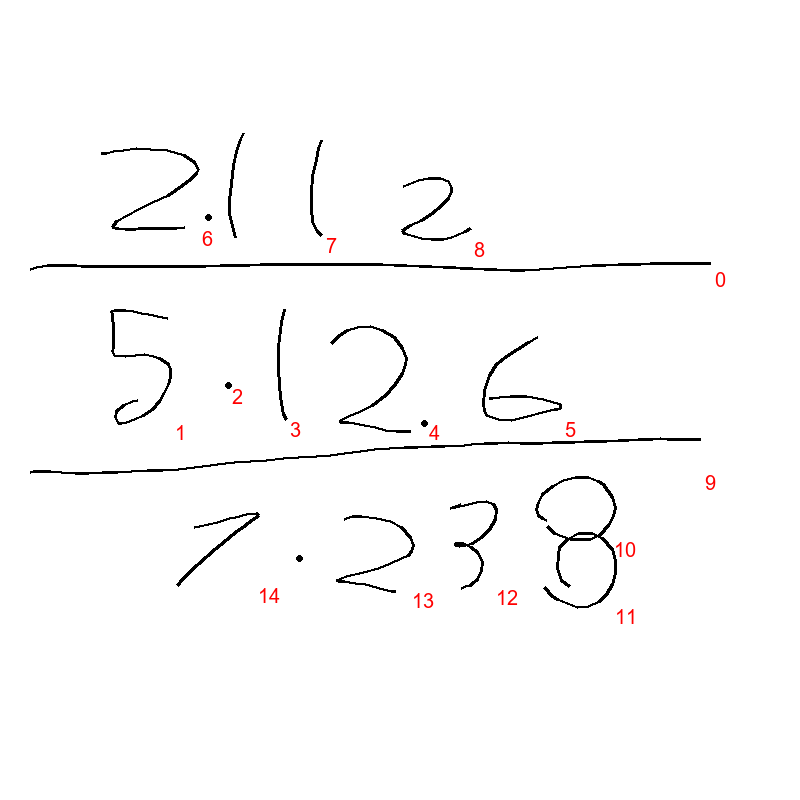 2.112
6 7 8
0
5.12.6
1 2 3 4 5
9
7.238
14 13 12 10
11